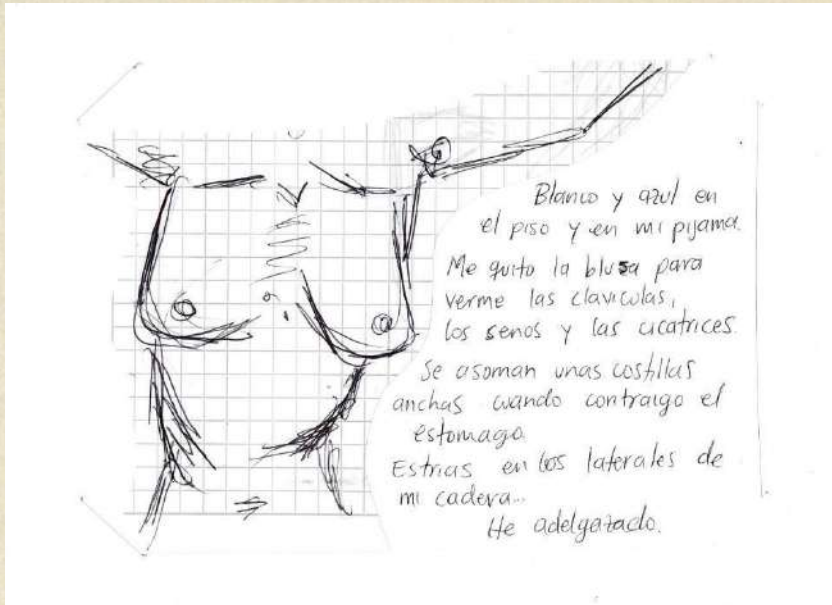 Blanco y azul en
el piso y en mi pijama.
Me quito la blusa para
verme las claviculas,
los senos y las cicatrices.
Se asoman unas costillas
anchas cuando contraigo el
estomago.
Estrias en los laterales de
mi cadera...
He adelgazado.